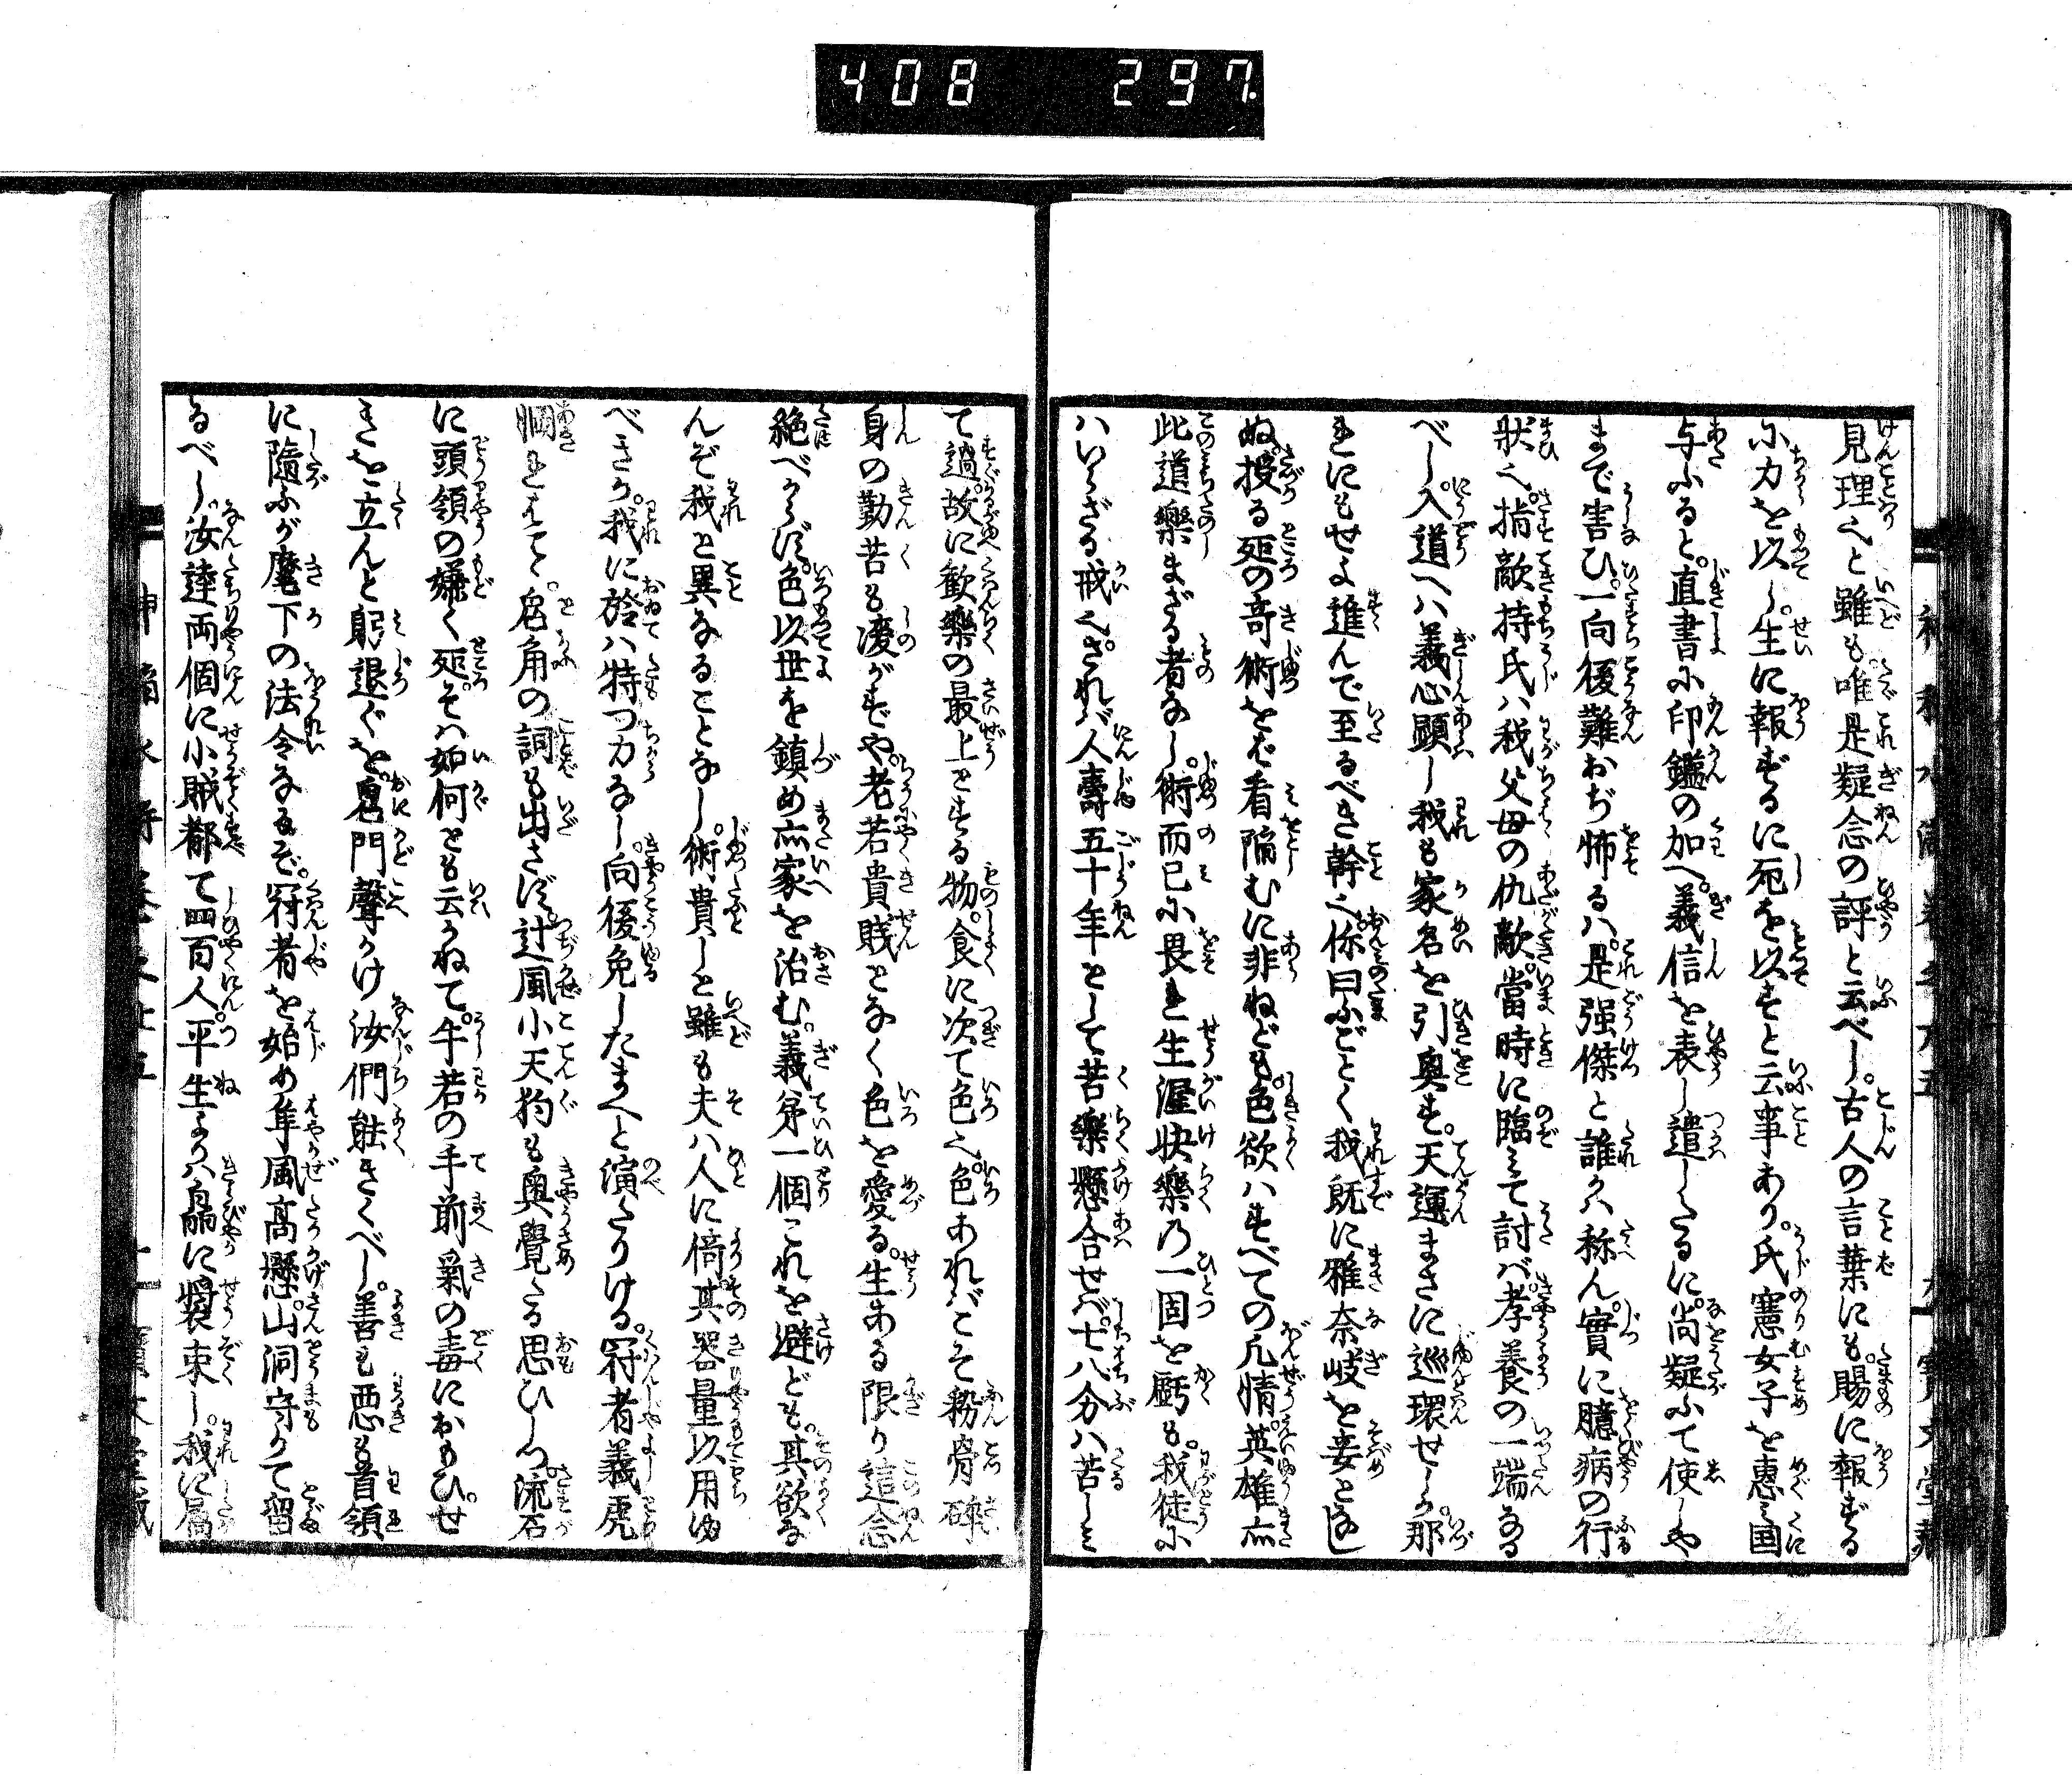 408 297
見理也と雖も唯是疑念の評と云べし。古人の言葉にも賜に報ずる
に力を以し。生に報ずるに死を以すと云事あり。氏憲女子を惠み国
与ふると。直書に印鑑の加へ。義信を表し遣したるに。尚疑ふて使しや
まで害ひ。一向後難おぢ怖るハ。是强傑と誰かハ称ん。實に臆病の行
状也。指敵持氏ハ我父母の仇敵。當時に臨みて討バ孝養の一端なる
べし。入道へハ義心顕し我も家名を引奥す。天運まさに巡環せしか。那
れにもせよ進んで至るべき幹也。你曰ふごとく我既に雅奈岐を妾となし
ぬ。授る処の奇術をば看陥むに非ねども。色欲ハすべての凡情。英雄亦
此道樂まざる者なし。術而已に畏れ生涯快樂乃一固を虧も。我徒に
ハいらざる戒也。されバ人壽五十年として苦樂懸合せバ。七八分ハ苦しみ
て過。故に歓樂の最上とする物。食に次て色也。色あれバこそ粉骨碎
身の勤苦も凌がずや。老若貴賎となく色を愛る。生ある限り這念
絶べからず。色以世を鎮め亦家を治む。義弟一個これを避ども。其欲な
んぞ我と異なることなし。術貴しと雖も夫ハ人に倚。其器量以用ゆ
べきか。我に於ハ特つ力なし。向後免したまへと演たりける。冠者義虎
惘れはて。鬼角の詞も出さず。辻風小天狗も奥覺たる思ひしつ。流石
に頭領の嫌く処。そハ如何とも云かねて。牛若の手前氣の毒におもひ。せ
きを立んと躬退ぐを。鬼門聲かけ汝們能きくべし。善も悪も首領
に隨ふが麾下の法令ならずや。冠者を始め隼風高懸。山洞守りて留
るべし。汝達両個に小賊都て四百人。平生よりハ扁に裝束し。我に属